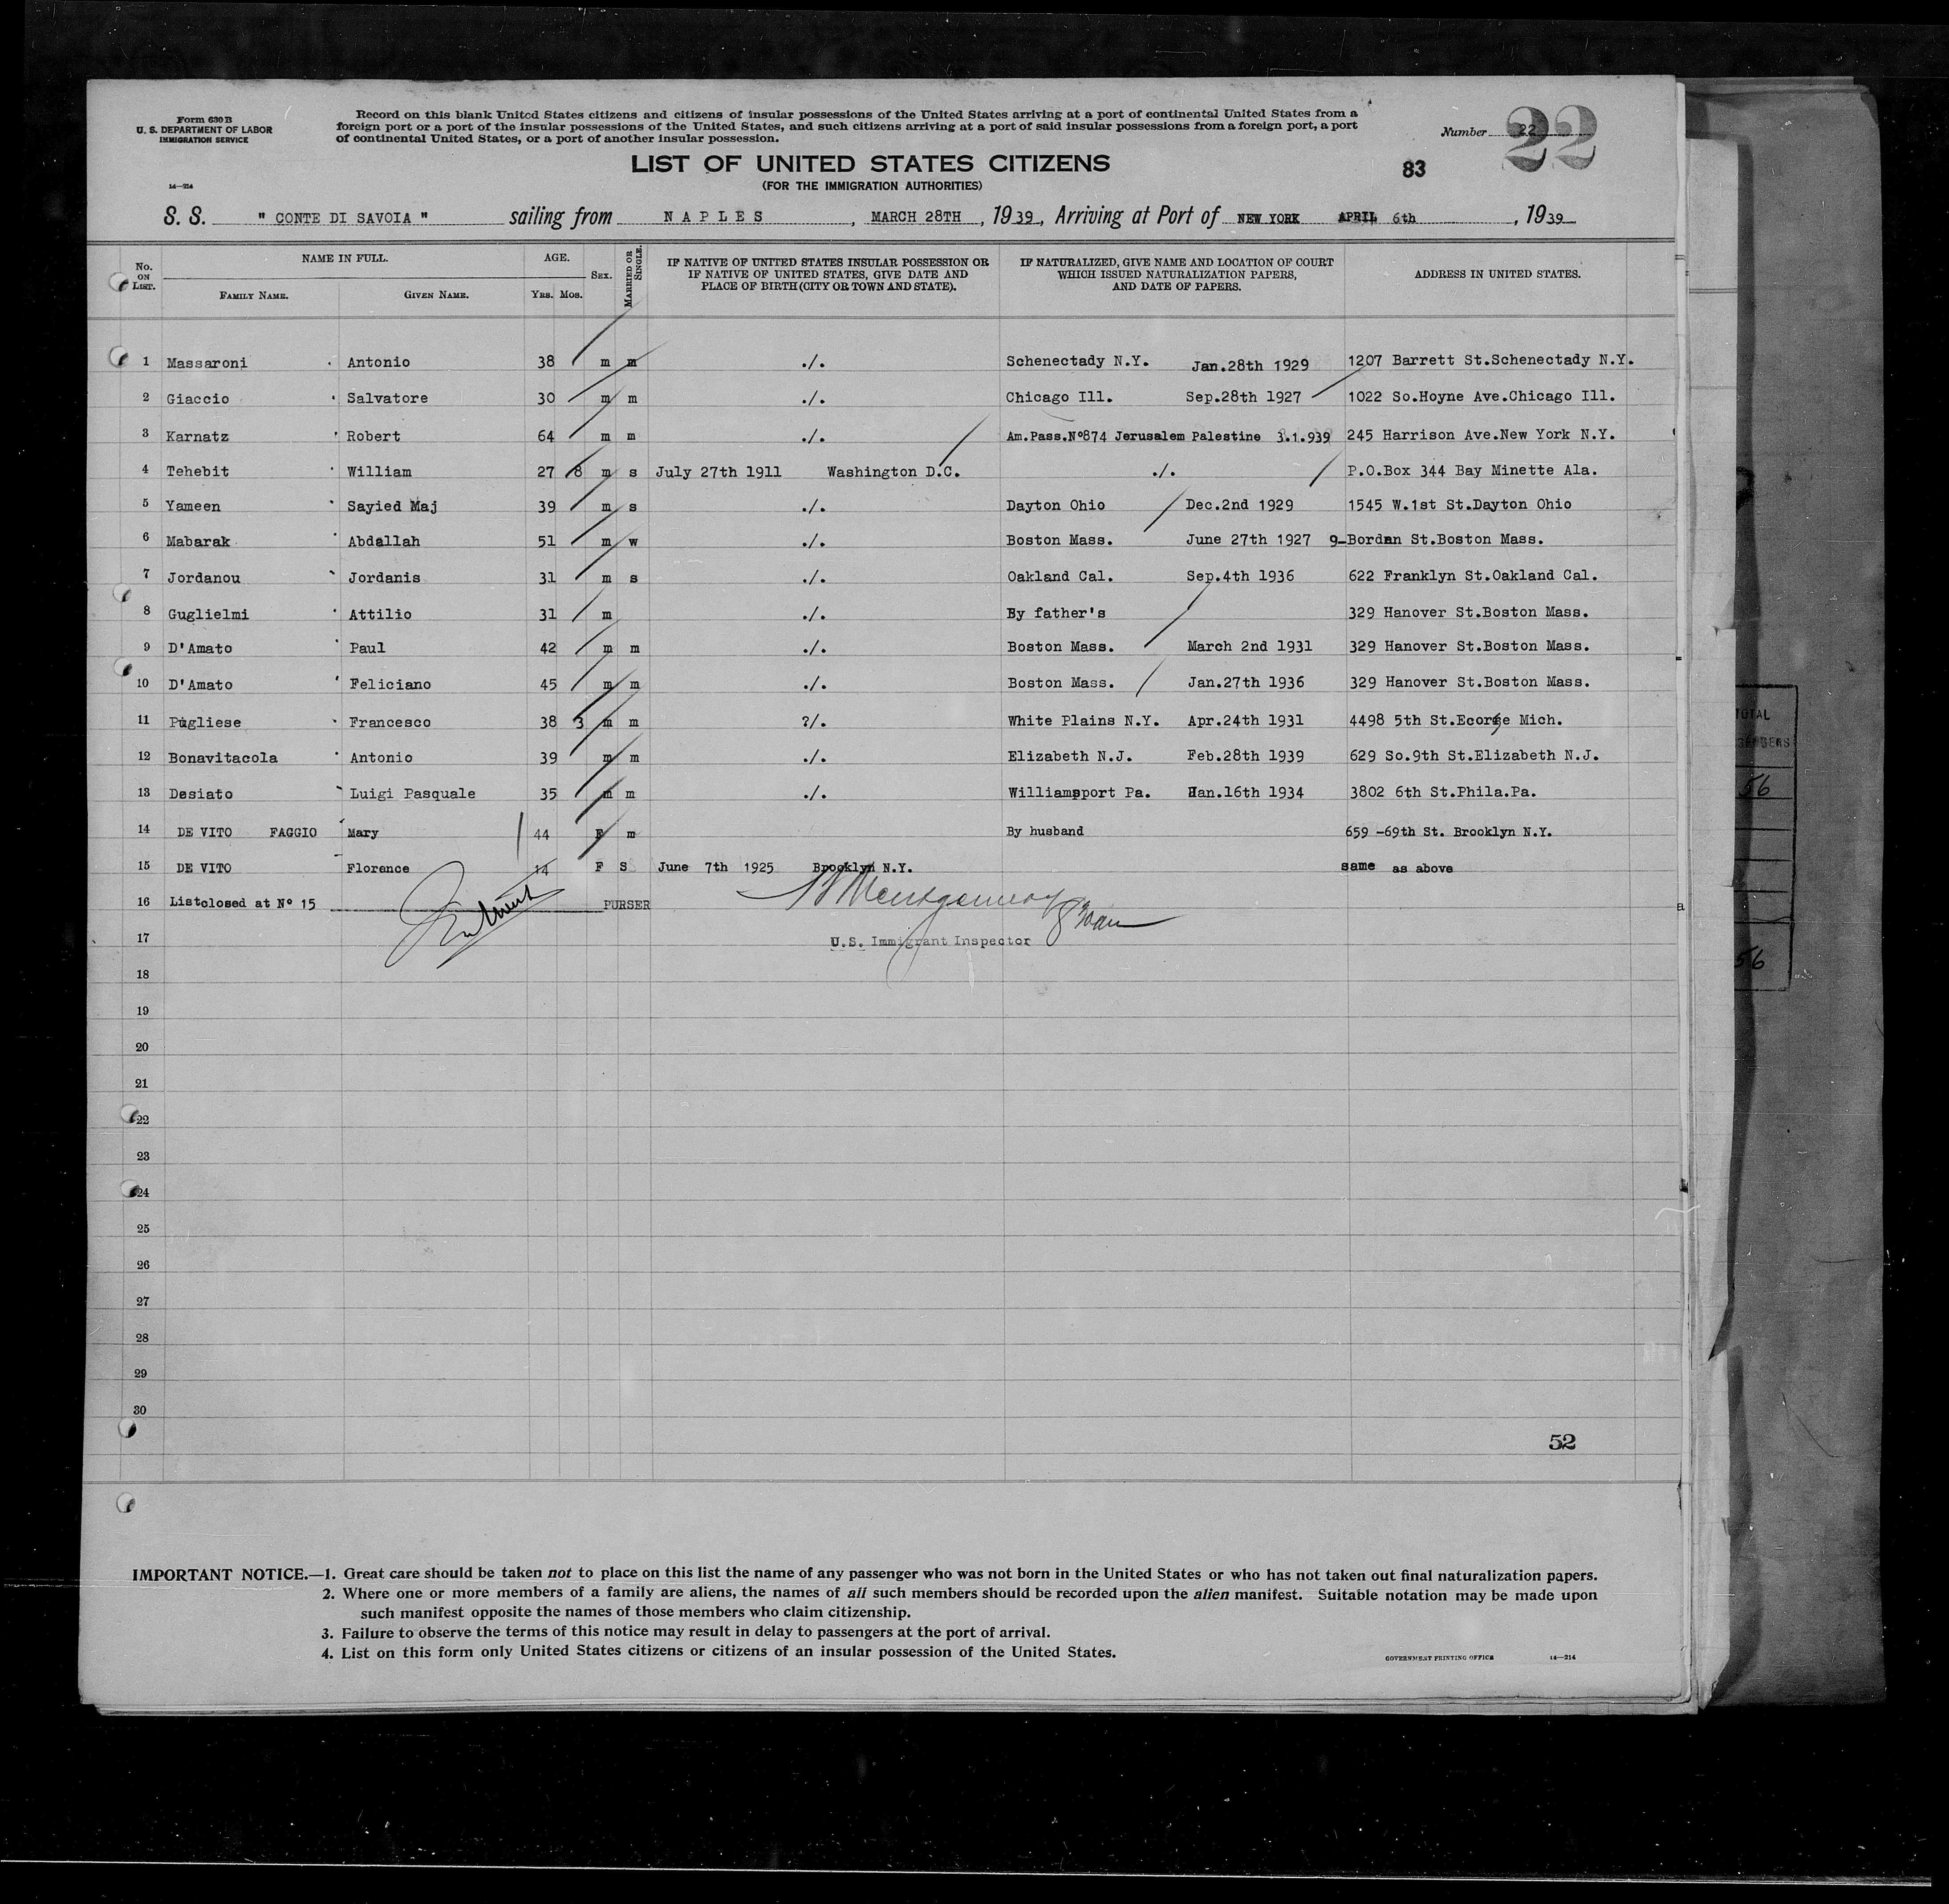 Form 630 B
U. S. DEPARTMENT OF LABOR
IMMIGRATION SERVICE
14—214
Record on this blank United States citizens and citizens of insular possessions of the United States arriving at a port of continental United States from a
foreign port or a port of the insular possessions of the United States, and such citizens arriving at a port of said insular possessions from a foreign port, a port
of continental United States, or a port of another insular possession.
Number 22
22
LIST OF UNITED STATES CITIZENS
(FOR THE IMMIGRATION AUTHORITIES)
83
S. S. " CONTE DI SAVOIA " sailing from NAPLES, MARCH 28TH, 1939, Arriving at Port of NEW YORK APRIL 6th, 1939
No. ON LIST. NAME IN FULL. FAMILY NAME. GIVEN NAME. AGE. YRS. MOS. SEX. MARRIED OR SINGLE. IF NATIVE OF UNITED STATES INSULAR POSSESSION OR IF NATIVE OF UNITED STATES, GIVE DATE AND PLACE OF BIRTH (CITY OR TOWN AND STATE). IF NATURALIZED, GIVE NAME AND LOCATION OF COURT WHICH ISSUED NATURALIZATION PAPERS, AND DATE OF PAPERS. ADDRESS IN UNITED STATES.
1 Massaroni Antonio 38 m m ./. Schenectady N.Y. Jan.28th 1929 1207 Barrett St.Schenectady N.Y.
2 Giaccio Salvatore 30 m m ./. Chicago Ill. Sep.28th 1927 1022 So.Hoyne Ave.Chicago Ill.
3 Karnatz Robert 64 m m ./. Am.Pass.Nº874 Jerusalem Palestine 3.1.939 245 Harrison Ave.New York N.Y.
4 Tehebit William 27 8 m s July 27th 1911 Washington D.C. ./. P.O.Box 344 Bay Minette Ala.
5 Yameen Sayied Maj 39 m s ./. Dayton Ohio Dec.2nd 1929 1545 W.1st St.Dayton Ohio
6 Mabarak Abdallah 51 m w ./. Boston Mass. June 27th 1927 9-Borden St.Boston Mass.
7 Jordanou Jordanis 31 m s ./. Oakland Cal. Sep.4th 1936 622 Franklyn St.Oakland Cal.
8 Guglielmi Attilio 31 m ./. By father's 329 Hanover St.Boston Mass.
9 D'Amato Paul 42 m m ./. Boston Mass. March 2nd 1931 329 Hanover St.Boston Mass.
10 D'Amato Feliciano 45 m m ./. Boston Mass. Jan.27th 1936 329 Hanover St.Boston Mass.
11 Pugliese Francesco 38 3 m m ?/. White Plains N.Y. Apr.24th 1931 4498 5th St.Ecorse Mich.
12 Bonavitacola Antonio 39 m m ./. Elizabeth N.J. Feb.28th 1939 629 So.9th St.Elizabeth N.J.
13 Desiato Luigi Pasquale 35 m m ./. Williamsport Pa. Jan.16th 1934 3802 6th St.Phila.Pa.
14 DE VITO FAGGIO Mary 44 F m By husband 659 -69th St. Brooklyn N.Y.
15 DE VITO Florence 14 F S June 7th 1925 Brooklyn N.Y. same as above
16 List closed at Nº 15 PURSER
17 U.S. Immigrant Inspector
18
19
20
21
22
23
24
25
26
27
28
29
30
52
IMPORTANT NOTICE.—1. Great care should be taken not to place on this list the name of any passenger who was not born in the United States or who has not taken out final naturalization papers.
2. Where one or more members of a family are aliens, the names of all such members should be recorded upon the alien manifest. Suitable notation may be made upon
such manifest opposite the names of those members who claim citizenship.
3. Failure to observe the terms of this notice may result in delay to passengers at the port of arrival.
4. List on this form only United States citizens or citizens of an insular possession of the United States.
GOVERNMENT PRINTING OFFICE 14—214
TOTAL
56
56